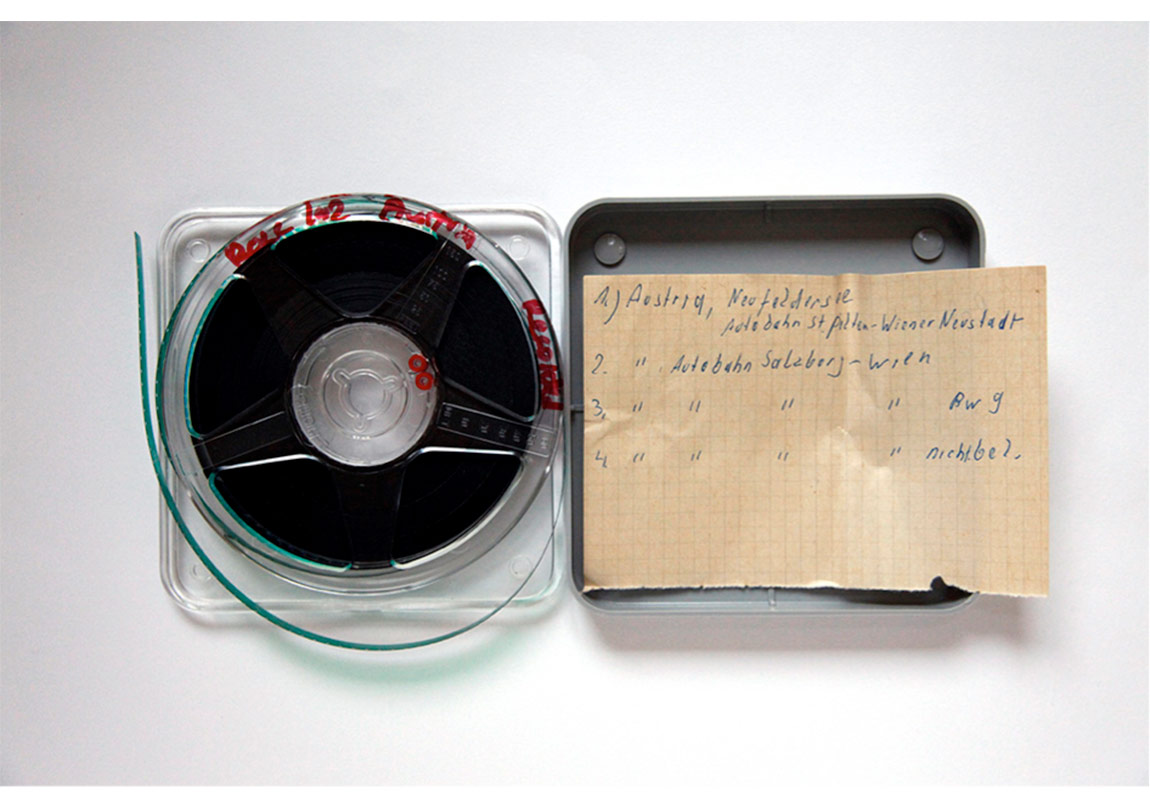 Roll 1+2 Austria
1.) Austria, Neufeldersee
Autobahn St. Pölten-Wiener Neustadt
2. " Autobahn Salzburg-Wien
3. " " " " Bw 9
4. " " " " nicht bel.